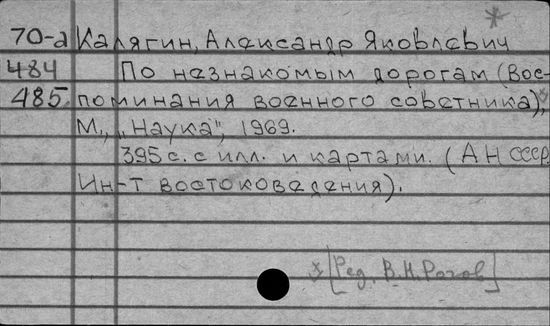 70-а Калягин, Александр Яковлевич
484 По незнакомым дорогам (Вос-
485 поминания военного советника),
М., „Наука", 1969.
395 с. с илл. и картами. (АН СССР.
Ин-т востоковедения).
[Ред. В.И. Рогов]